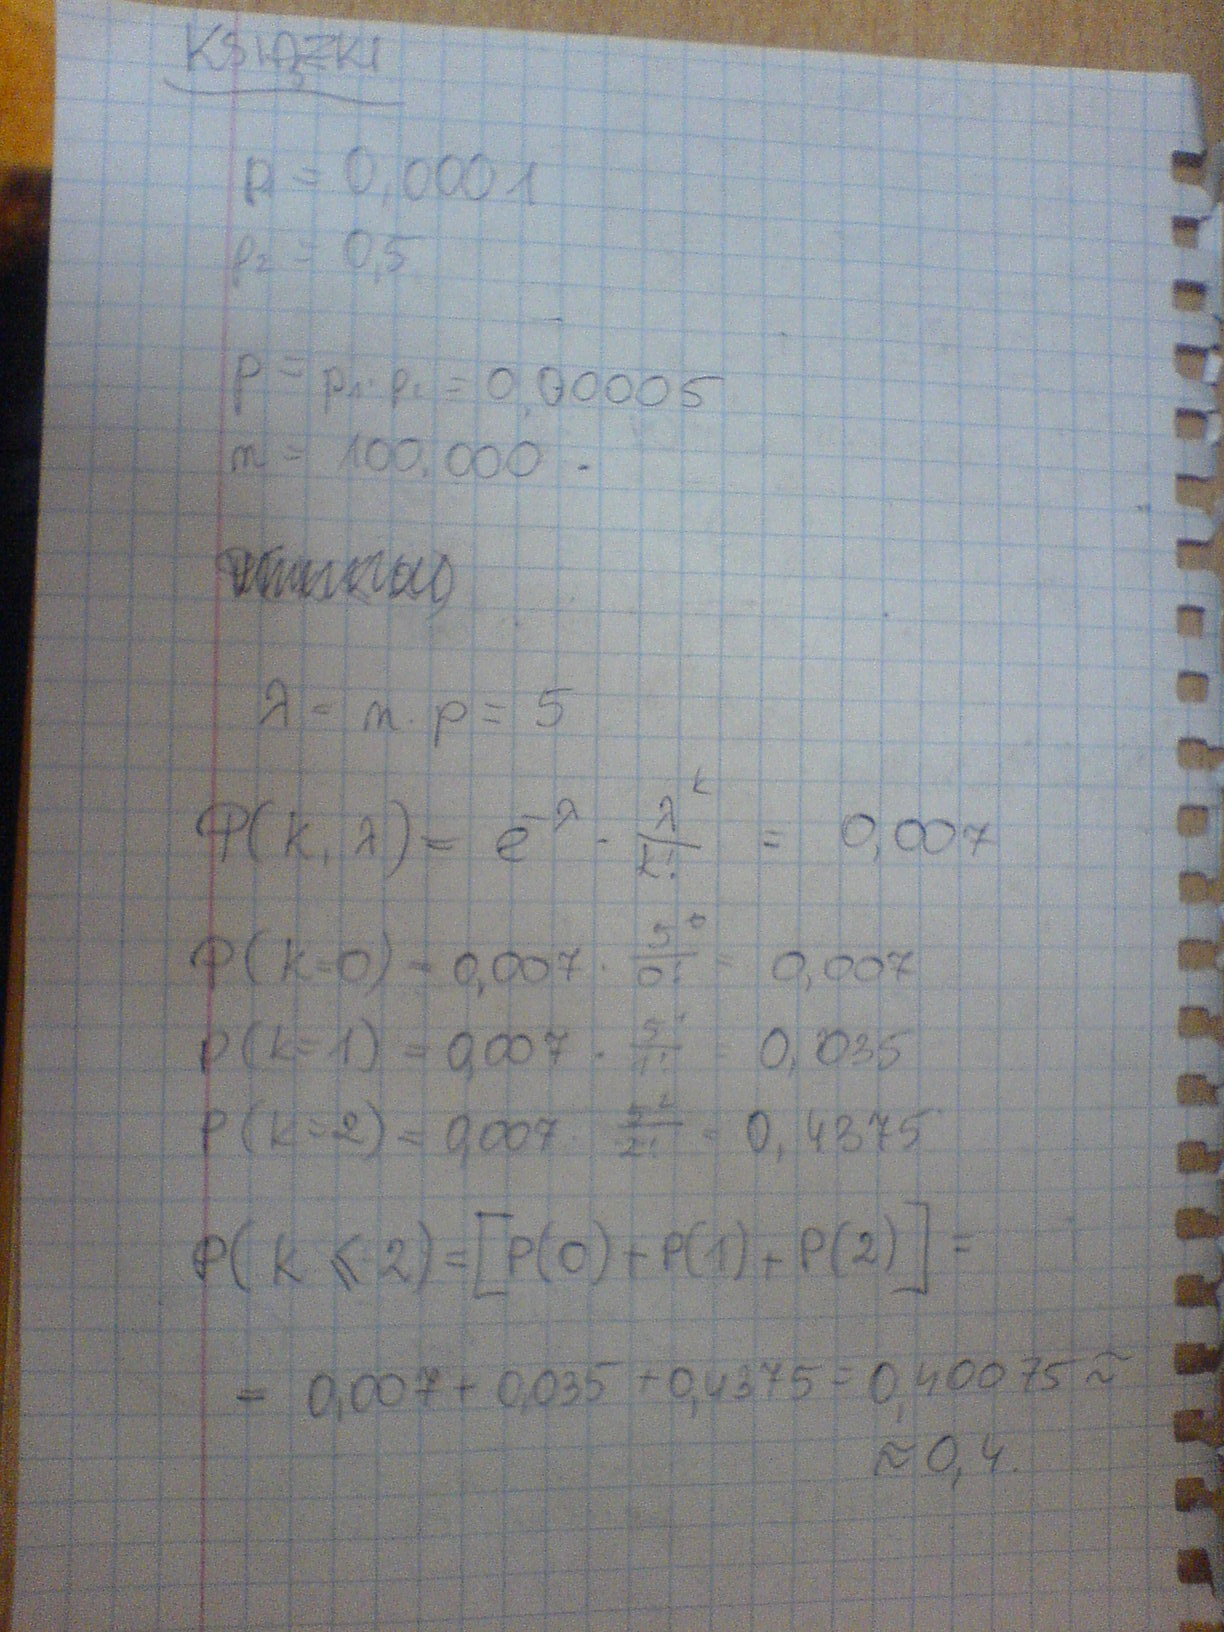 KSIĄŻKI
p₁ = 0,0001
p₂ = 0,5
p = p₁ · p₂ = 0,00005
n = 100.000 .
λ = n · p = 5
P(k, λ) = e^-λ · λ^k/k! = 0,007
P(k=0) = 0,007 · 5^0/0! = 0,007
P(k=1) = 0,007 · 5^1/1! = 0,035
P(k=2) = 0,007 · 5^2/2! = 0,4375
P(k ⩽ 2) = [P(0) + P(1) + P(2)] =
= 0,007 + 0,035 + 0,4375 = 0,40075 ≈
≈ 0,4.